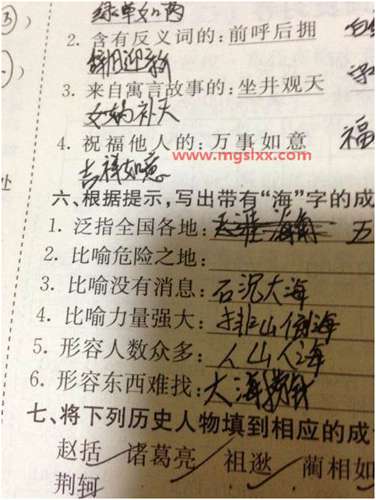 ③ 绿草如茵
2. 含有反义词的：前呼后拥
辞旧迎新
3. 来自寓言故事的：坐井观天
女娲补天
4. 祝福他人的：万事如意 福
www.mgslxx.com
吉祥如意
处
六、根据提示，写出带有“海”字的成
1. 泛指全国各地：天涯海角 五
2. 比喻危险之地：
3. 比喻没有消息：石沉大海
4. 比喻力量强大：排山倒海
5. 形容人数众多：人山人海
6. 形容东西难找：大海捞针
七、将下列历史人物填到相应的成
赵括 诸葛亮 祖逖 蔺相如
荆轲